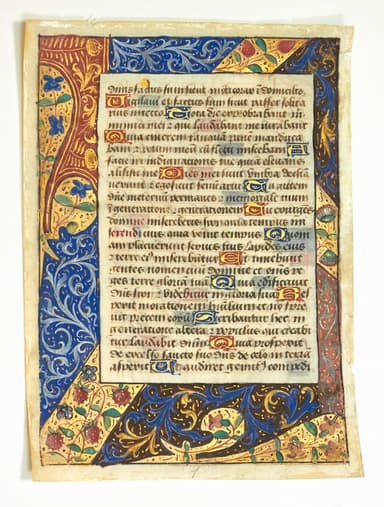 Vigilavi et factus sum sicut passer solita
rius in tecto Tota die exprobrabant m
inimici mei et qui laudabant me iurabant
Quia cinerem tanquam panem manduca
bam et potum meum cum fletu miscebam A
facie ire indignationis tue quia elevans
allisisti me Dies mei sicut umbra decli
naverunt et ego sicut fenum arui Tu autem
domine in eternum permanes et memoriale tuum
in generatione et generationem Tu exurges
domine misereberis syon quia tempus mi
serendi eius quia venit tempus Quoni
am placuerunt servis tuis lapides eius
et terre eius miserebuntur Et timebunt
gentes nomen tuum domine et omnes re
ges terre gloriam tuam Quia edificavit
dominus syon et videbitur in gloria sua Res
pexit in orationem humilium et non spre
vit precem eorum Scribantur hec in
generatione altera et populus qui creabi
tur laudabit dominum Quia prospexit
de excelso sancto suo dominus de celo in terram
aspexit Ut audiret gemitus compedi